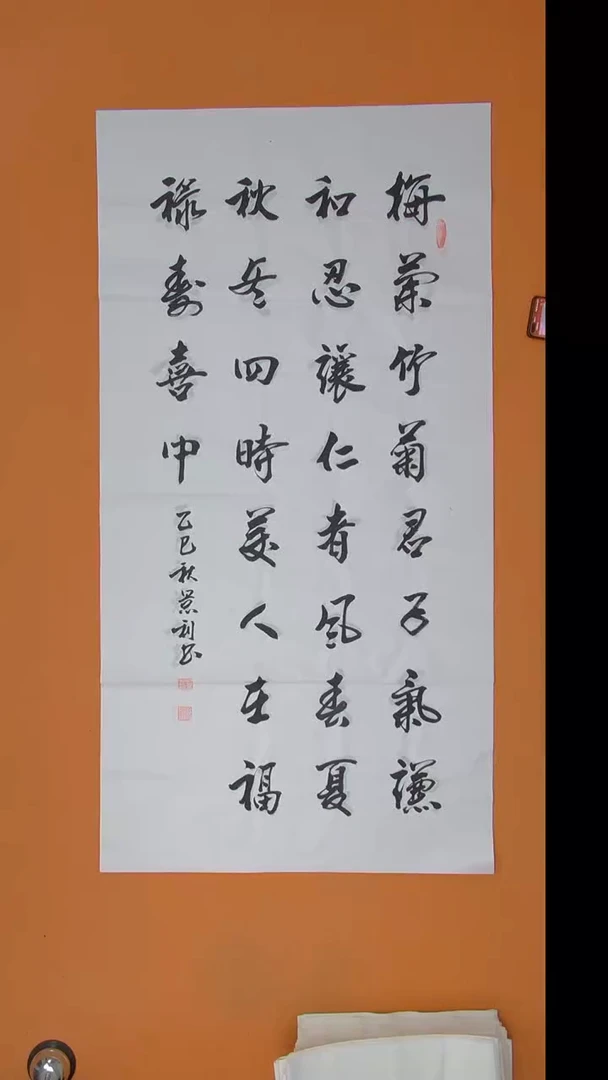 梅蘭竹菊君子氣謙
和忍讓仁者風春夏
秋冬四時美人在福
祿壽喜中
乙巳秋景利书